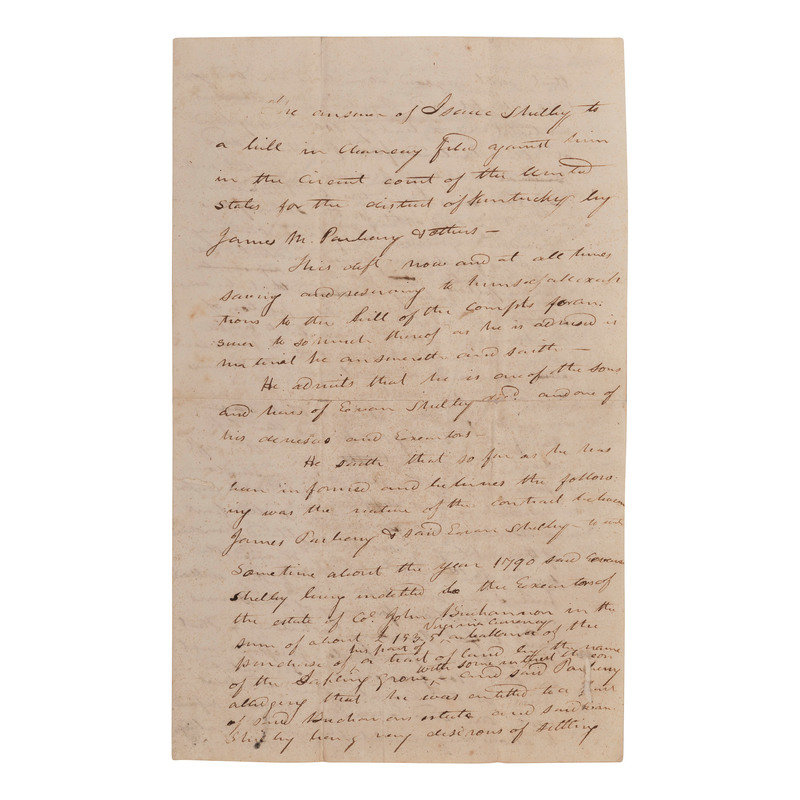 The answer of Isaac Shelby to
a bill in Chancery filed against him
in the Circuit court of the United
States for the district of Kentucky by
James M. & others —
This deft now and at all times
saving and reserving to himself all excep
tions to the bill of the Complts for an-
swer to so much thereof as he is advised is
material he answereth and saith —
He admits that he is one of the sons
and heirs of Evan Shelby decd. and one of
his devisees and Executors —
He saith that so far as he has
been informed and believes the follow-
ing was the nature of the contract between
James & said Evan Shelby — to wit
Sometime about the year 1790 said Evan
Shelby being indebted to the Executors of
the estate of Co. John Buchannon in the
Virginia Currency
sum of about £ a ballance of the
for part of
purchase of a tract of land by the name
with some interest
of the Sapling grove, — and said
alledging that he was entitled to a part
of said Buchanons estate and said Evan
Shelby being very desirous of settling